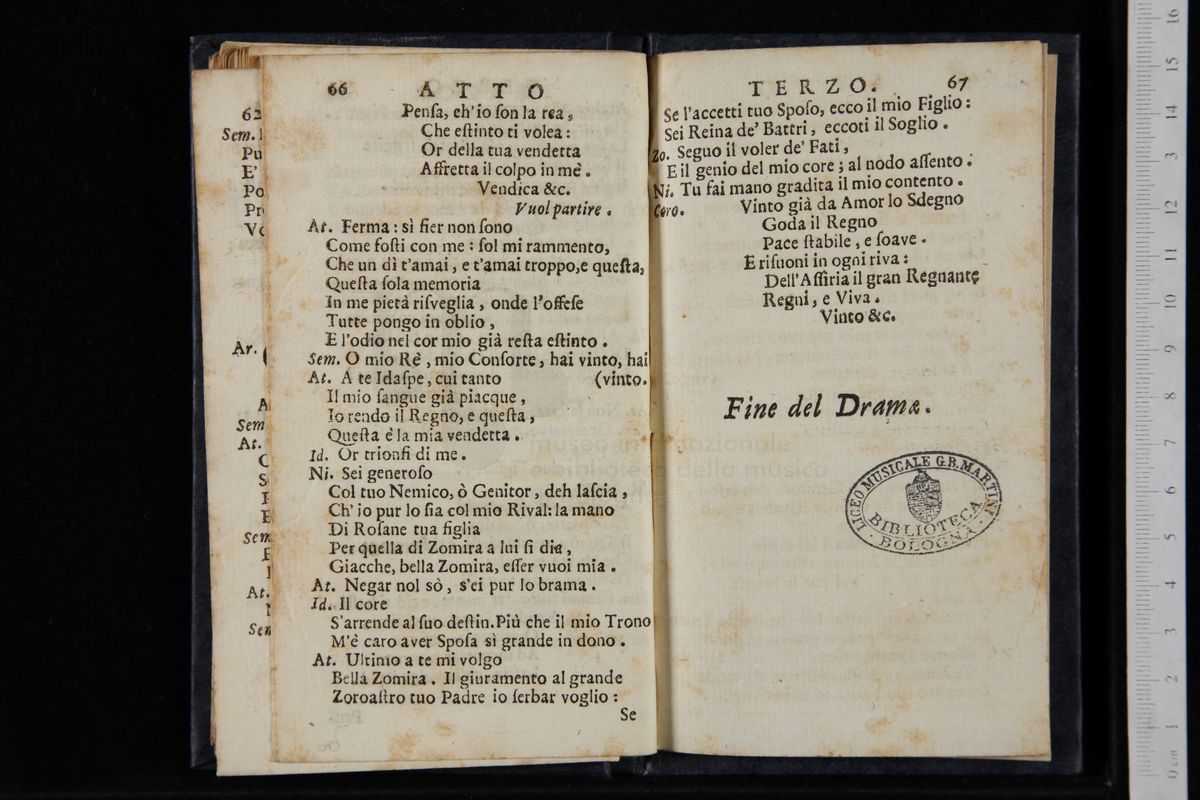 62
Sem.
Pu
E'
Po
Pr
Vo
Ar.
A
Sem
At.
C
S
Sem
At.
Sem
66 ATTO
Penſa, ch'io ſon la rea,
Che eſtinto ti volea:
Or della tua vendetta
Affretta il colpo in mè.
Vendica &c.
Vuol partire.
At. Ferma: sì fier non ſono
Come foſti con me: ſol mi rammento,
Che un dì t'amai, e t'amai troppo, e queſta,
Queſta ſola memoria
In me pietà riſveglia, onde l'offeſe
Tutte pongo in oblio,
E l'odio nel cor mio già reſta eſtinto.
Sem. O mio Rè, mio Conſorte, hai vinto, hai
At. A te Idaſpe, cui tanto (vinto.
Il mio ſangue già piacque,
Io rendo il Regno, e queſta,
Queſta è la mia vendetta.
Id. Or trionfi di me.
Ni. Sei generoſo
Col tuo Nemico, ò Genitor, deh laſcia,
Ch'io pur lo ſia col mio Rival: la mano
Di Roſane tua figlia
Per quella di Zomira a lui ſi dia,
Giacche, bella Zomira, eſſer vuoi mia.
At. Negar nol sò, s'ei pur lo brama.
Id. Il core
S'arrende al ſuo deſtin. Più che il mio Trono
M'è caro aver Spoſa sì grande in dono.
At. Ultimo a te mi volgo
Bella Zomira. Il giuramento al grande
Zoroaſtro tuo Padre io ſerbar voglio:
Se
TERZO. 67
Se l'accetti tuo Spoſo, ecco il mio Figlio:
Sei Reina de' Battri, eccoti il Soglio.
Zo. Seguo il voler de' Fati,
E il genio del mio core; al nodo aſſento.
Ni. Tu fai mano gradita il mio contento.
Coro. Vinto già da Amor lo Sdegno
Goda il Regno
Pace ſtabile, e ſoave.
E riſuoni in ogni riva:
Dell'Aſſiria il gran Regnante
Regni, e Viva.
Vinto &c.
Fine del Drama.
museo internazionale
e biblioteca della musica
LICEO MUSICALE G.B. MARTINI
BIBLIOTECA
· BOLOGNA ·
0 cm 1 2 3 4 5 6 7 8 9 10 11 12 13 14 15 16